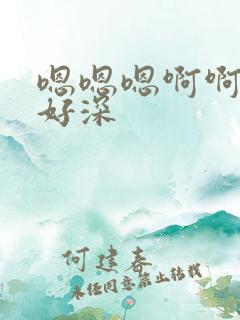 嗯嗯嗯啊啊
好深
何建春
未经同意禁止转载